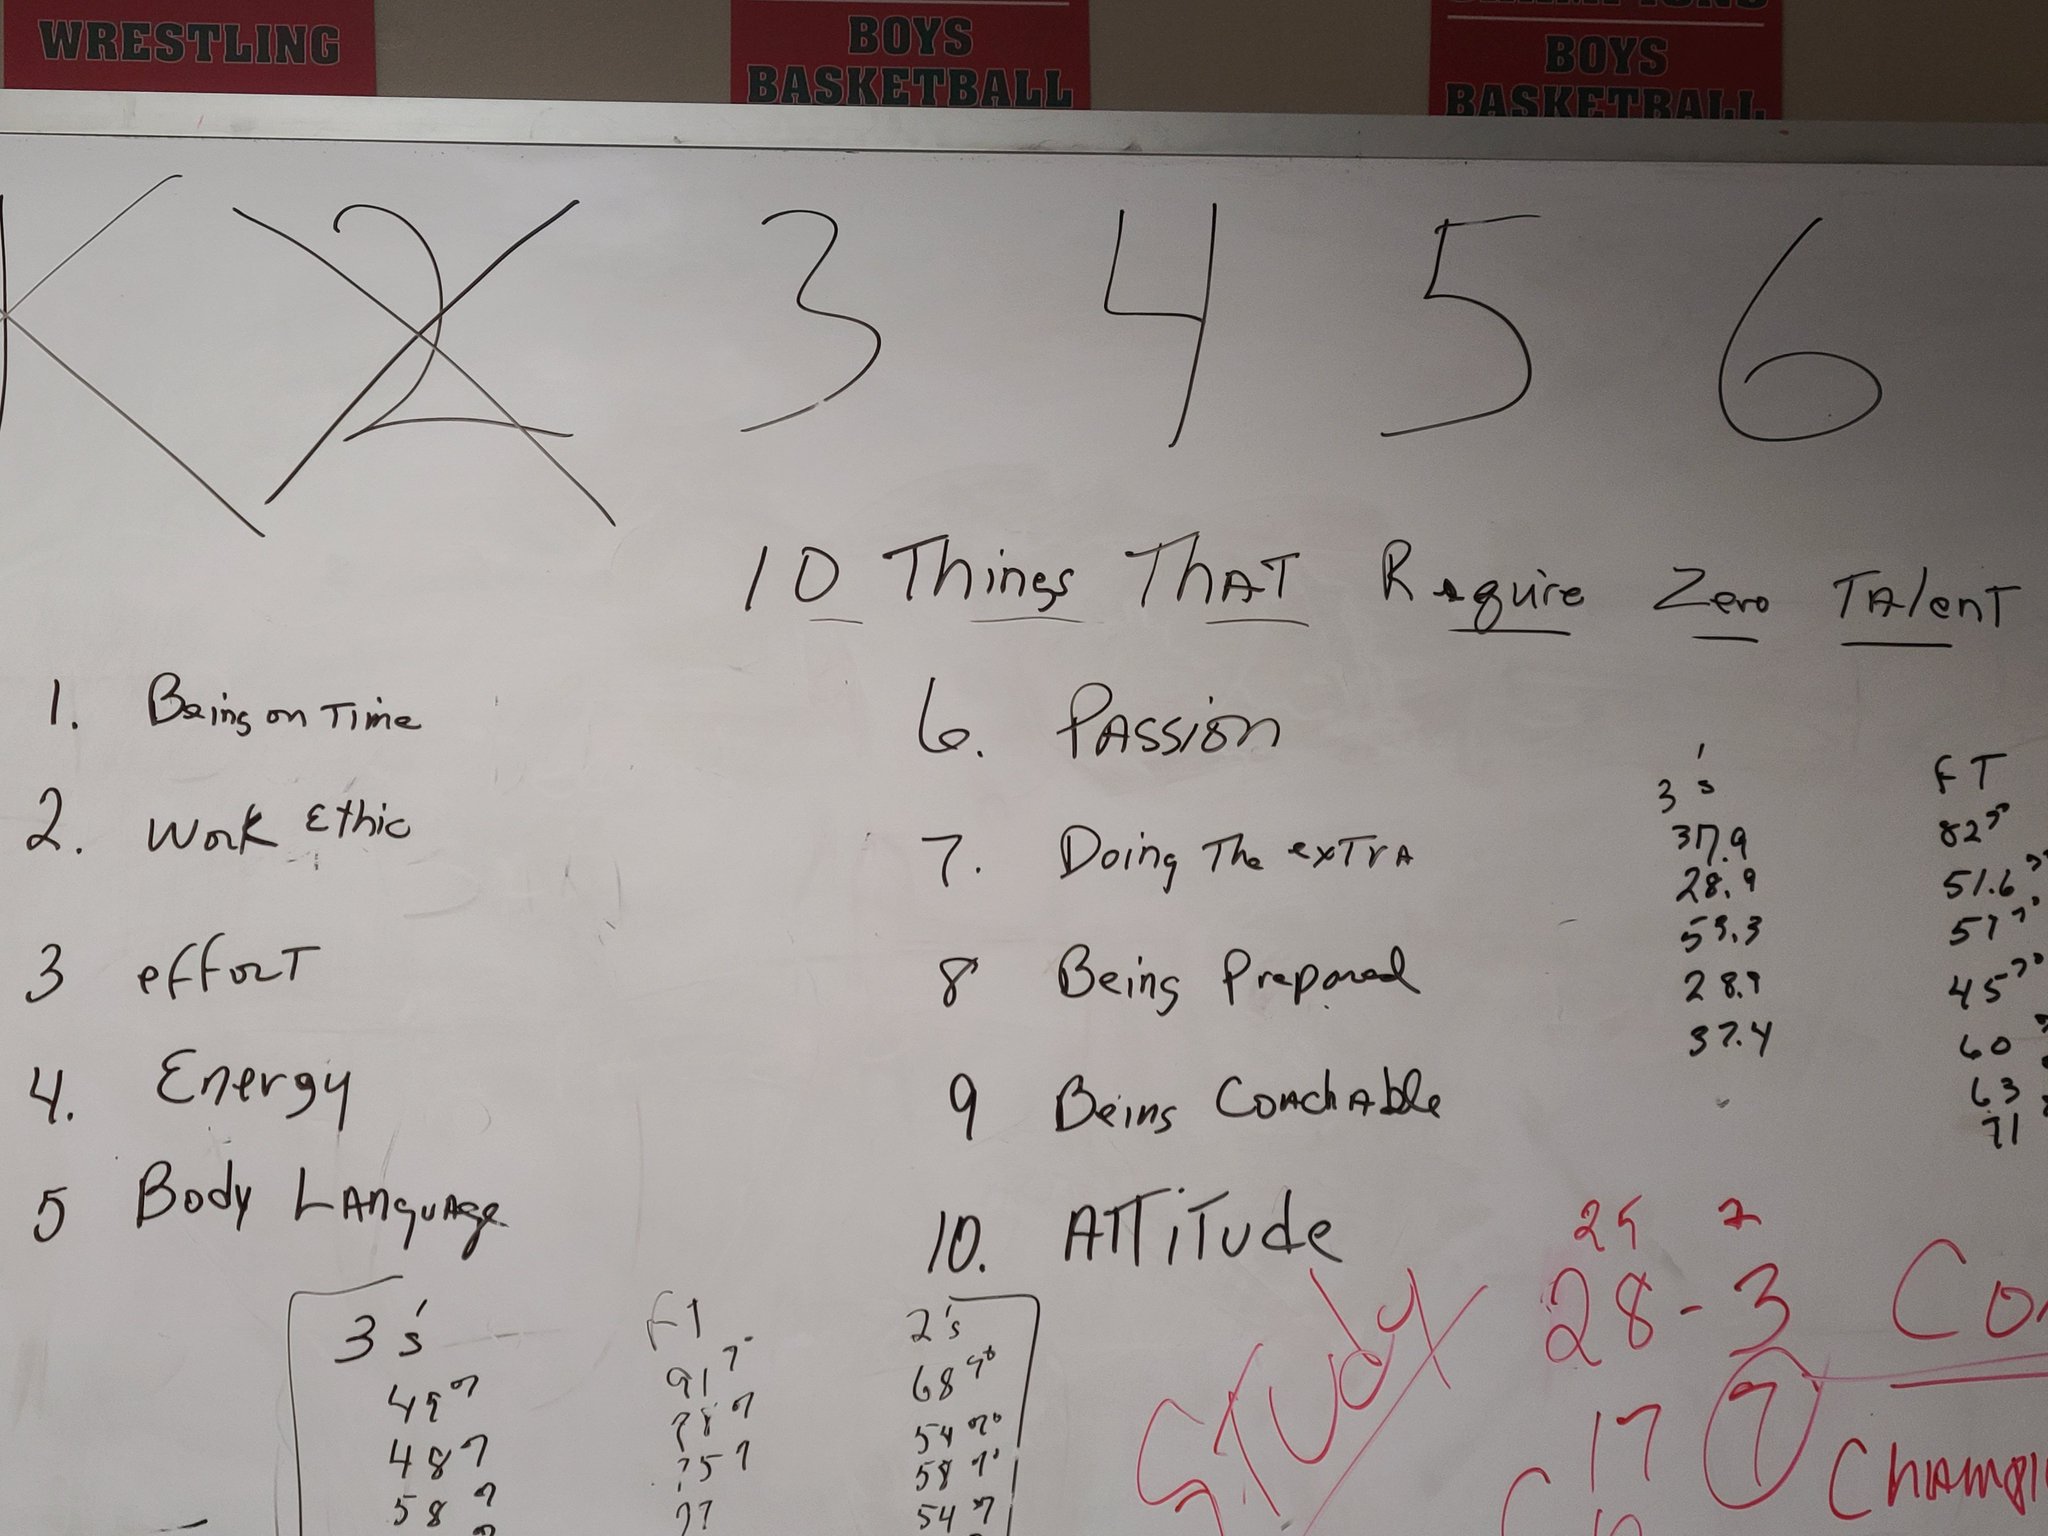 WRESTLING
BOYS
BASKETBALL
BOYS
BASKETBALL
2 3 4 5 6
10 Things ThAT Require Zero TAlenT
1. Being on Time
2. Work Ethic
3 effort
4. Energy
5 Body LAnguAge
6. PAssion
7. Doing The exTrA
8 Being Prepared
9 Being CoachAble
10. ATTiTude
3's
37.9
28.9
59.3
28.9
37.4
FT
82%
51.6%
57%
45%
60
63
71
3's
49%
48%
58%
FT
91%
78%
75%
77
2's
68%
54%
58%
54%
STudy
28-3
17 7